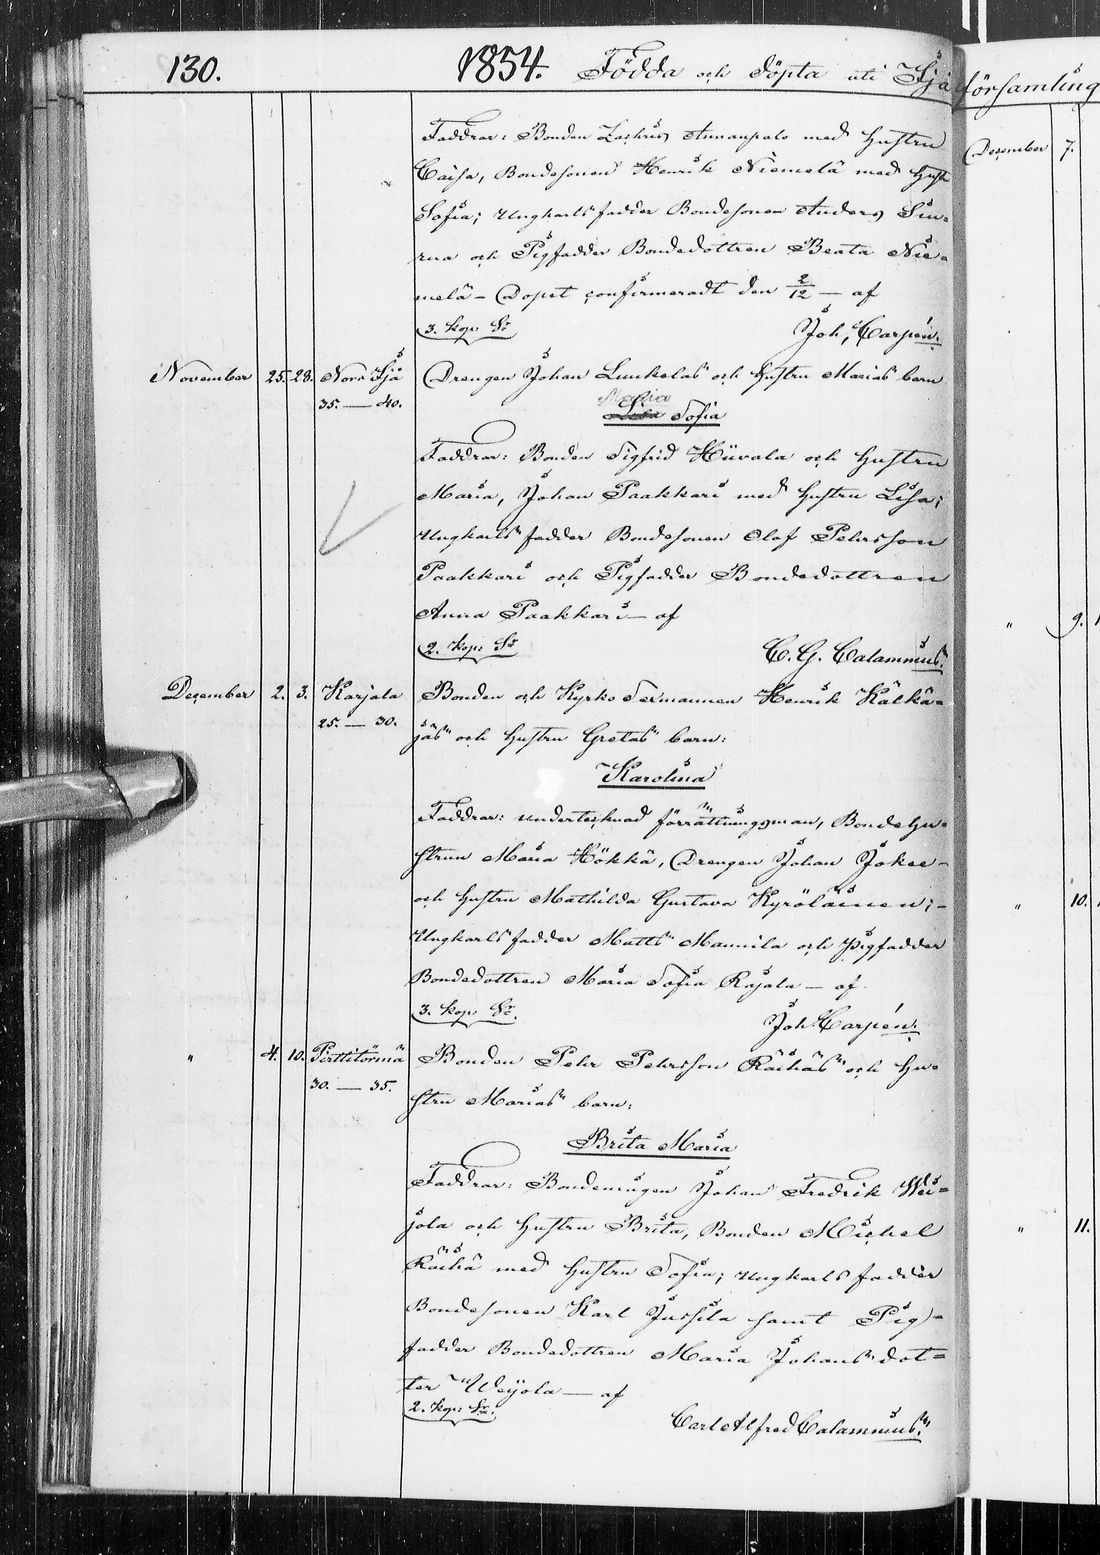 130.
1854. Födda och Döpta uti Ijo
församling
Faddrar: Bonden Zachris Annunpalo med hustru
Caisa, Bondesonen Henrik Niemelä med hust
Sofia; Ungkarlsfadder Bondesonen Anders Sin-
rua och Pigfadder Bondedottren Beata Nie-
melä – Dopet confirmeradt den 2/12 — af
3. kop. Sr
Joh, Carpén.
November 25. 28. Norr Ijo
35. — 40.
Drengen Johan Lunkelas och hustru Marias barn
Maria
Sofia
Faddrar: Bonden Sigfrid Hiivala och hustru
Maria, Johan Paakkari med hustru Lisa;
Ungkarls fadder Bondesonen Olof Pehrsson
Paakkari och Pigfadder Bondedottren
Anna Paakkari — af
2. kop: Sr
C. G. Calamnius.
December 2. 3. Karjala
25. — 30.
Bonden och Kyrko Sexmannen Henrik Kälkä-
jäs och hustru Gretas barn:
Karolina
Faddrar: undertecknad förrättningsman, Bondehu-
strun Maria Hökkä, Drengen Johan Jokee –
och hustru Mathilda Gustava Kyröläinen; –
Ungkarls fadder Matts Mannila och Pigfadder
Bondedottren Maria Sofia Rajala — af
3. kop. Sr.
Joh. Carpén.
" 4. 10. Pirttitörmä
30. — 35.
Bonden Pehr Pehrsson Räihäs och hu-
stru Marias barn:
Brita Maria
Faddrar: Bondemågen Johan Fredrik Wei-
jola och hustru Brita, Bonden Michel
Räihä med hustru Sofia; Ungkarls fadder
Bondesonen Karl Jussila samt Pig-
fadder Bondedottren Maria Johans dot-
ter Weijola — af
2. kop: Sr.
Carl Alfred Calamnius.
December 7.
" 9.
" 10.
" 11.